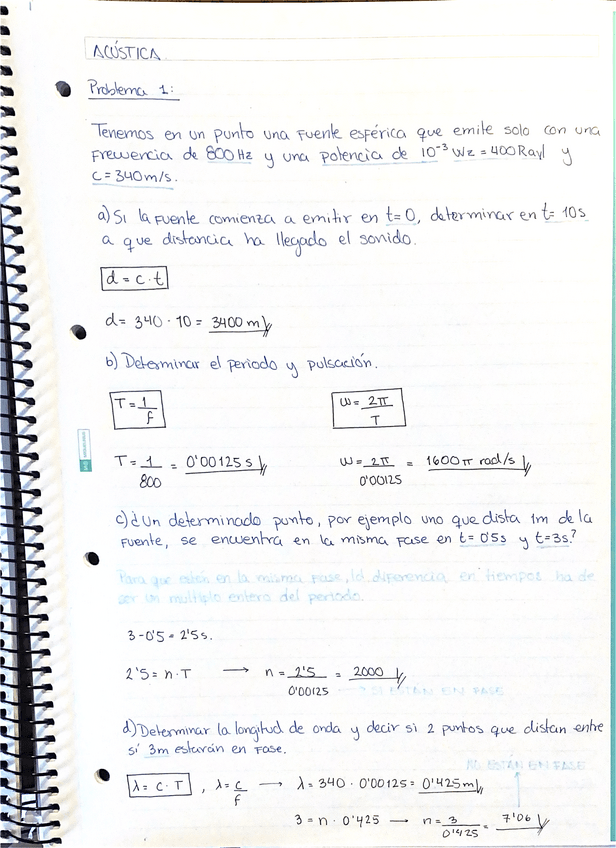 ACÚSTICA
Problema 1:
Tenemos en un punto una fuente esférica que emite solo con una
frecuencia de 800 Hz y una potencia de 10⁻³ W z = 400 Rayl y
c = 340 m/s.
a) Si la fuente comienza a emitir en t=0, determinar en t= 10s
a que distancia ha llegado el sonido.
d = c·t
d = 340 · 10 = 3400 m
b) Determinar el periodo y pulsación.
T = 1/f ω = 2π/T
T = 1/800 = 0'00125 s ω = 2π/0'00125 = 1600π rad/s
c) ¿Un determinado punto, por ejemplo uno que dista 1m de la
fuente, se encuentra en la misma fase en t= 0'5s y t=3s?
Para que estén en la misma fase, la diferencia en tiempos ha de
ser un múltiplo entero del periodo.
3 - 0'5 = 2'5 s.
2'5 = n·T → n = 2'5/0'00125 = 2000
→ SI ESTÁN EN FASE
d) Determinar la longitud de onda y decir si 2 puntos que distan entre
sí 3m estarán en fase.
NO ESTÁN EN FASE
λ = c·T , λ = c/f → λ = 340 · 0'00125 = 0'425 m
3 = n · 0'425 → n = 3/0'425 = 7'06